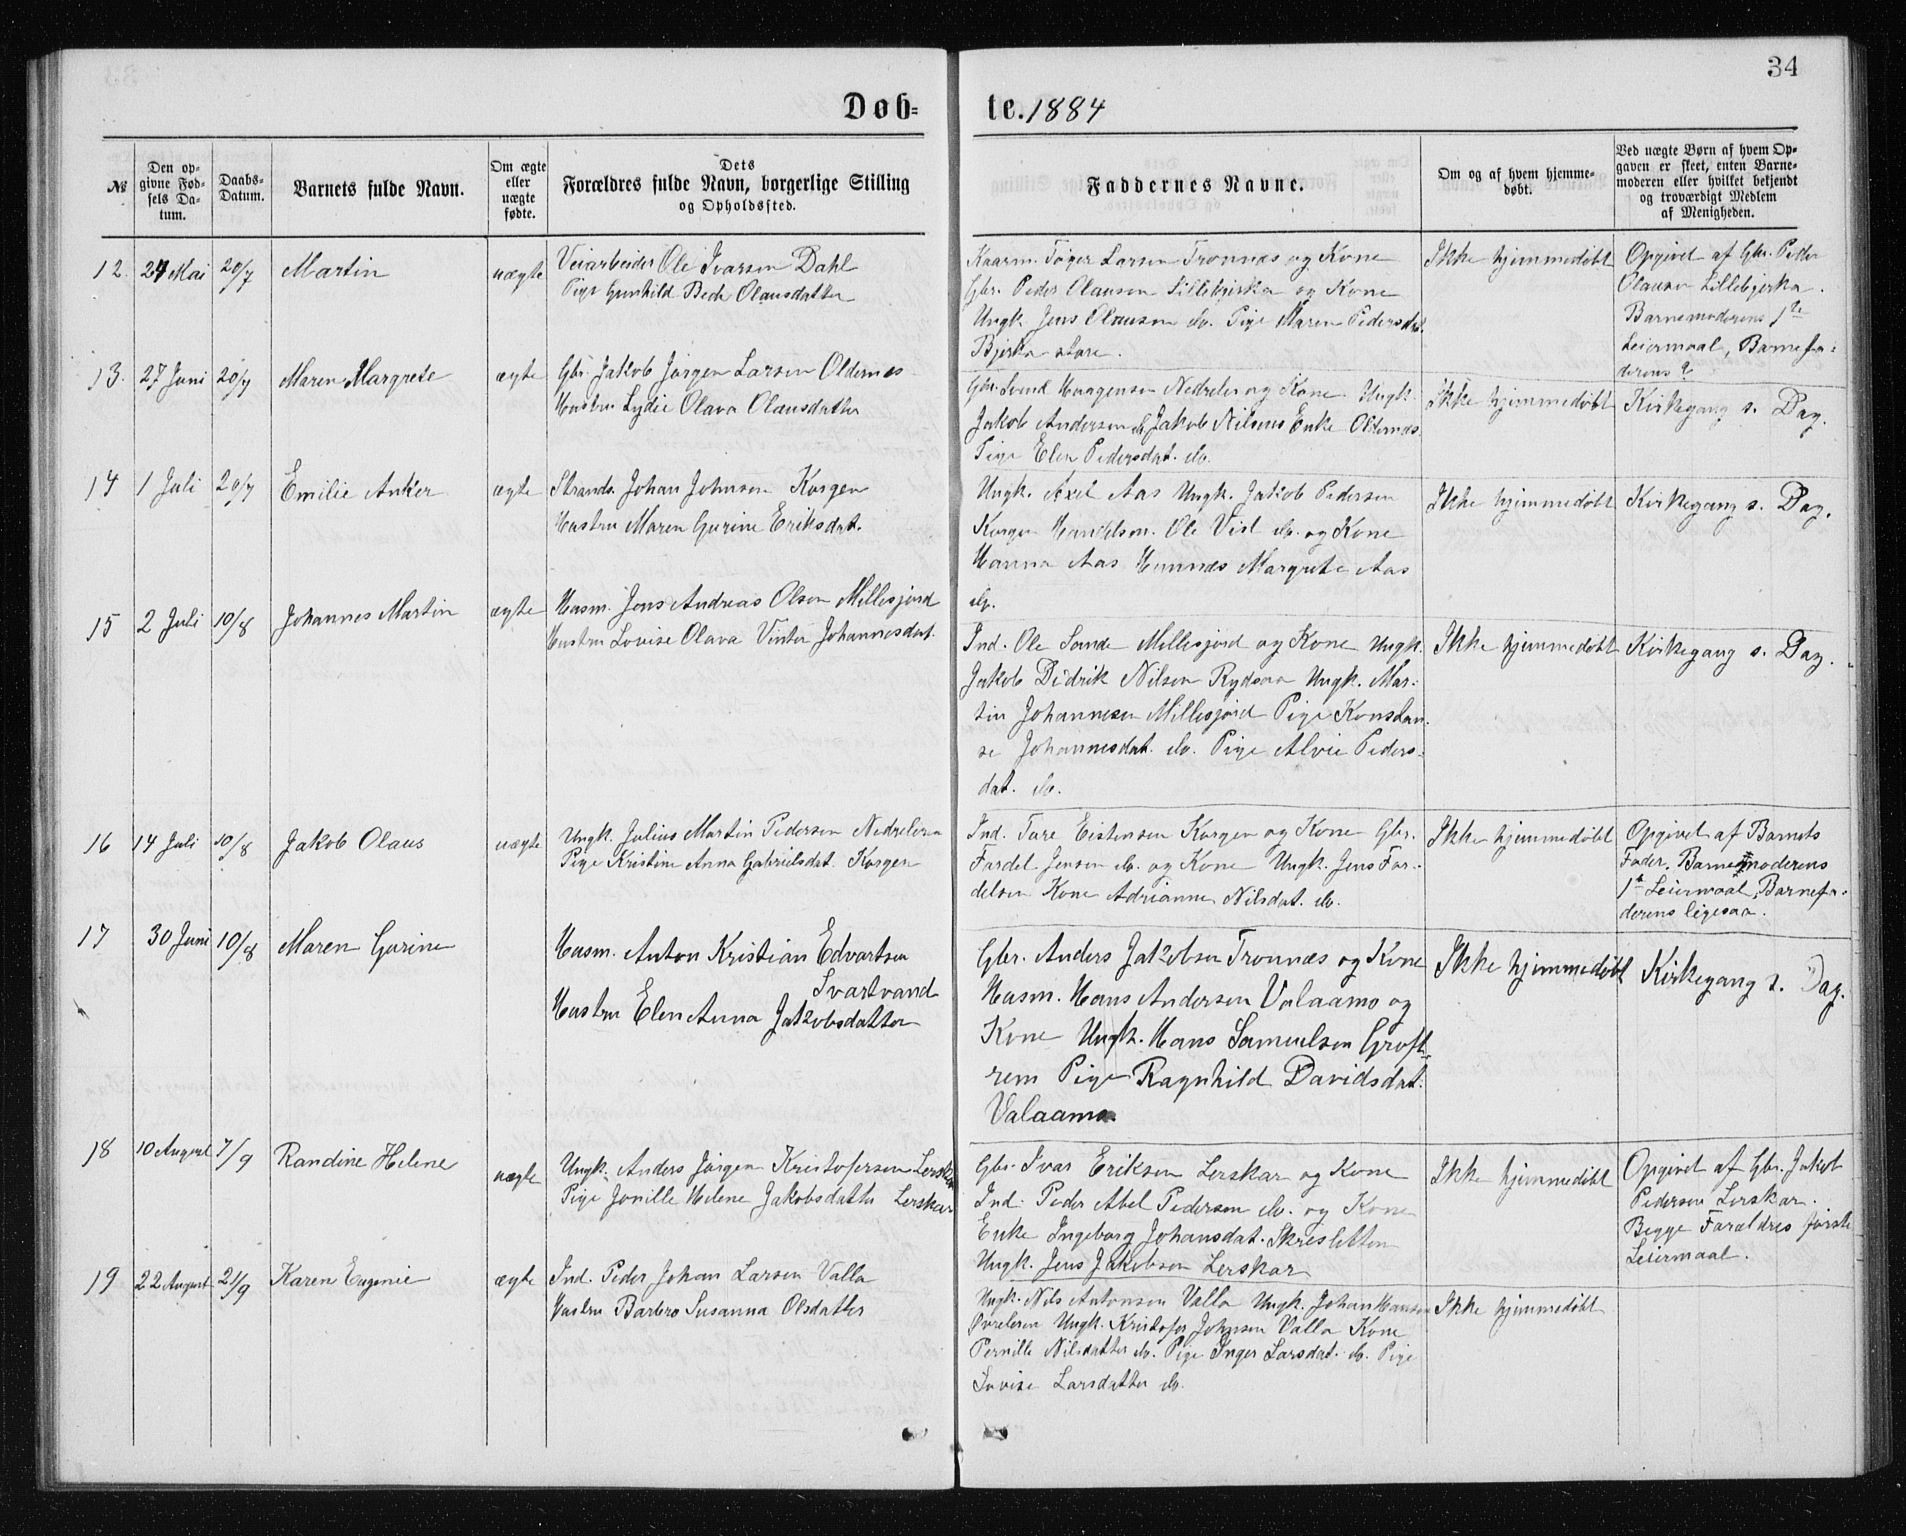 34
Døb-
te. 1884
№
Den op-
givne Fød-
sels Da-
tum.
Daabs-
Datum.
Barnets fulde Navn.
Om ægte
eller
uægte
fødte.
Dets
Forældres fulde Navn, borgerlige Stilling
og Opholdssted.
Faddernes Navne.
Om og af hvem hjemme-
døbt.
Ved uægte Børn af hvem Op-
gaven er skeet, enten Barne-
moderen eller hvilket bekjendt
og troværdigt Medlem
af Menigheden.
12. 24 Mai 20/7 Martin uægte
Veiarbeider Ole Ivarsen Dahl
Pige Gunhild Beck Olausdatter
Kaarm. Töger Larsen Tronnæs og Kone
Gbr. Peder Olausen Lillebjerka og Kone
Ungk. Jens Olausen do. Pige Maren Pedersdat.
Bjerka store.
Ikke hjemmedøbt
Opgivet af Gbr. Peder
Olausen Lillebjerka.
Barnemoderens 1ste
Leiermaal, Barnefa-
derens ?
13. 27 Juni 20/7 Maren Margrete ægte
Gbr. Jakob Jørgen Larsen Oldernes
Hustru Lydie Olava Olausdatter
Gbr. Svend Haagensen Nedreleren og Kone Ungk.
Jakob Andersen do Jakob Nilsens Enke Oldernæs
Pige Elen Pedersdat. do.
Ikke hjemmedøbt
Kirkegang s. Dag.
14 1 Juli 20/7 Emilie Anker ægte
Strands. Johan Johnsen Korgen
Hustru Maren Gurine Eriksdat.
Ungk. Axel Aas Ungk. Jakob Pedersen
Korgen Handelsm. Ole Vist do. og Kone
Hanna Aas Hemnæs Margrete Aas
do.
Ikke hjemmedøbt
Kirkegang s. Dag.
15 2 Juli 10/8 Johannes Martin ægte
Husm. Jens Andreas Olsen Millesjord
Hustru Lovise Olava Vinter Johannesdat.
Ind. Ole Sande Millesjord og Kone Ungk.
Jakob Didrik Nilsen Rydsaa Ungk. Mar-
tin Johannesen Millesjord Pige Konstan-
se Johannesdat. do. Pige Alvie Peders-
dat. do.
Ikke hjemmedøbt
Kirkegang s. Dag.
16 14 Juli 10/8 Jakob Olaus uægte
Ungk. Julius Martin Pedersen Nedreleren
Pige Kristine Anna Gabrielsdat. Korgen
Ind. Tore Eistensen Korgen og Kone Gbr.
Fardel Jensen do. og Kone Ungk. Jens Far-
delsen Kone Adrianne Nilsdat. do.
Ikke hjemmedøbt
Opgivet af Barnets
Fader. Barnemoderens
1ste Leiermaal, Barnefa-
derens ligesaa.
17 30 Juni 10/8 Maren Gurine
Husm. Anton Kristian Edvartsen
Svartvand
Hustru Elen Anna Jakobsdatter
Gbr. Anders Jakobsen Tronnæs og Kone
Husm. Hans Andersen Valaamo og
Kone Ungk. Hans Samuelsen Groft-
rem Pige Ragnhild Davidsdat.
Valaamo
Ikke hjemmedøbt
Kirkegang s. Dag.
18 10 August 7/9 Randine Helene uægte
Ungk. Anders Jørgen Kristofersen Lerskar
Pige Jonille Helene Jakobsdatter Lerskar
Gbr. Ivar Eriksen Lerskar og Kone
Ind. Peder Abel Pedersen do. og Kone
Enke Ingeborg Johansdat. Skresletten
Ungk. Jens Jakobsen Lerskar
Ikke hjemmedøbt
Opgivet af Gbr. Jakob
Pedersen Lerskar.
Begge Forældres første
Leiermaal.
19 22 August 21/9 Karen Eugenie ægte
Ind. Peder Johan Larsen Valla
Hustru Barbro Susanna Olsdatter
Ungk. Nils Antonsen Valla Ungk. Johan Hansen
Øvreleren Ungk. Kristofer Johnsen Valla Kone
Pernille Nilsdatter do. Pige Inger Larsdat. do. Pige
Lovise Larsdatter do.
Ikke hjemmedøbt